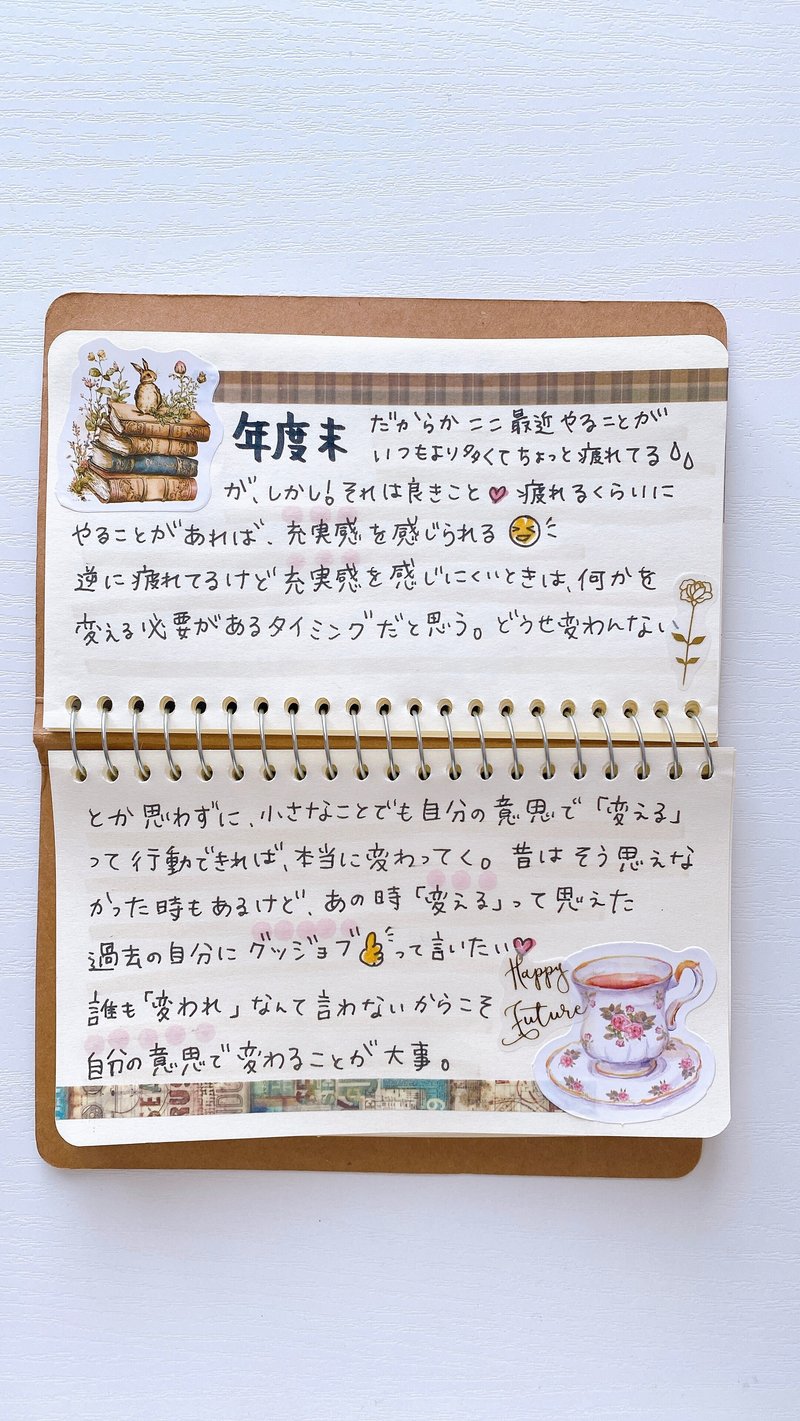 年度末 だからか ここ最近やることが
いつもより多くてちょっと疲れてる
が、しかし!それは良きこと 疲れるくらいに
やることがあれば、充実感を感じられる
逆に疲れてるけど充実感を感じにくいときは、何かを
変える必要があるタイミングだと思う。どうせ変わんない
とか思わずに、小さなことでも自分の意思で「変える」
って行動できれば、本当に変わってく。昔はそう思えな
かった時もあるけど、あの時「変える」って思えた
過去の自分にグッジョブって言いたい
Happy
Future
誰も「変われ」なんて言わないからこそ
自分の意思で変わることが大事。